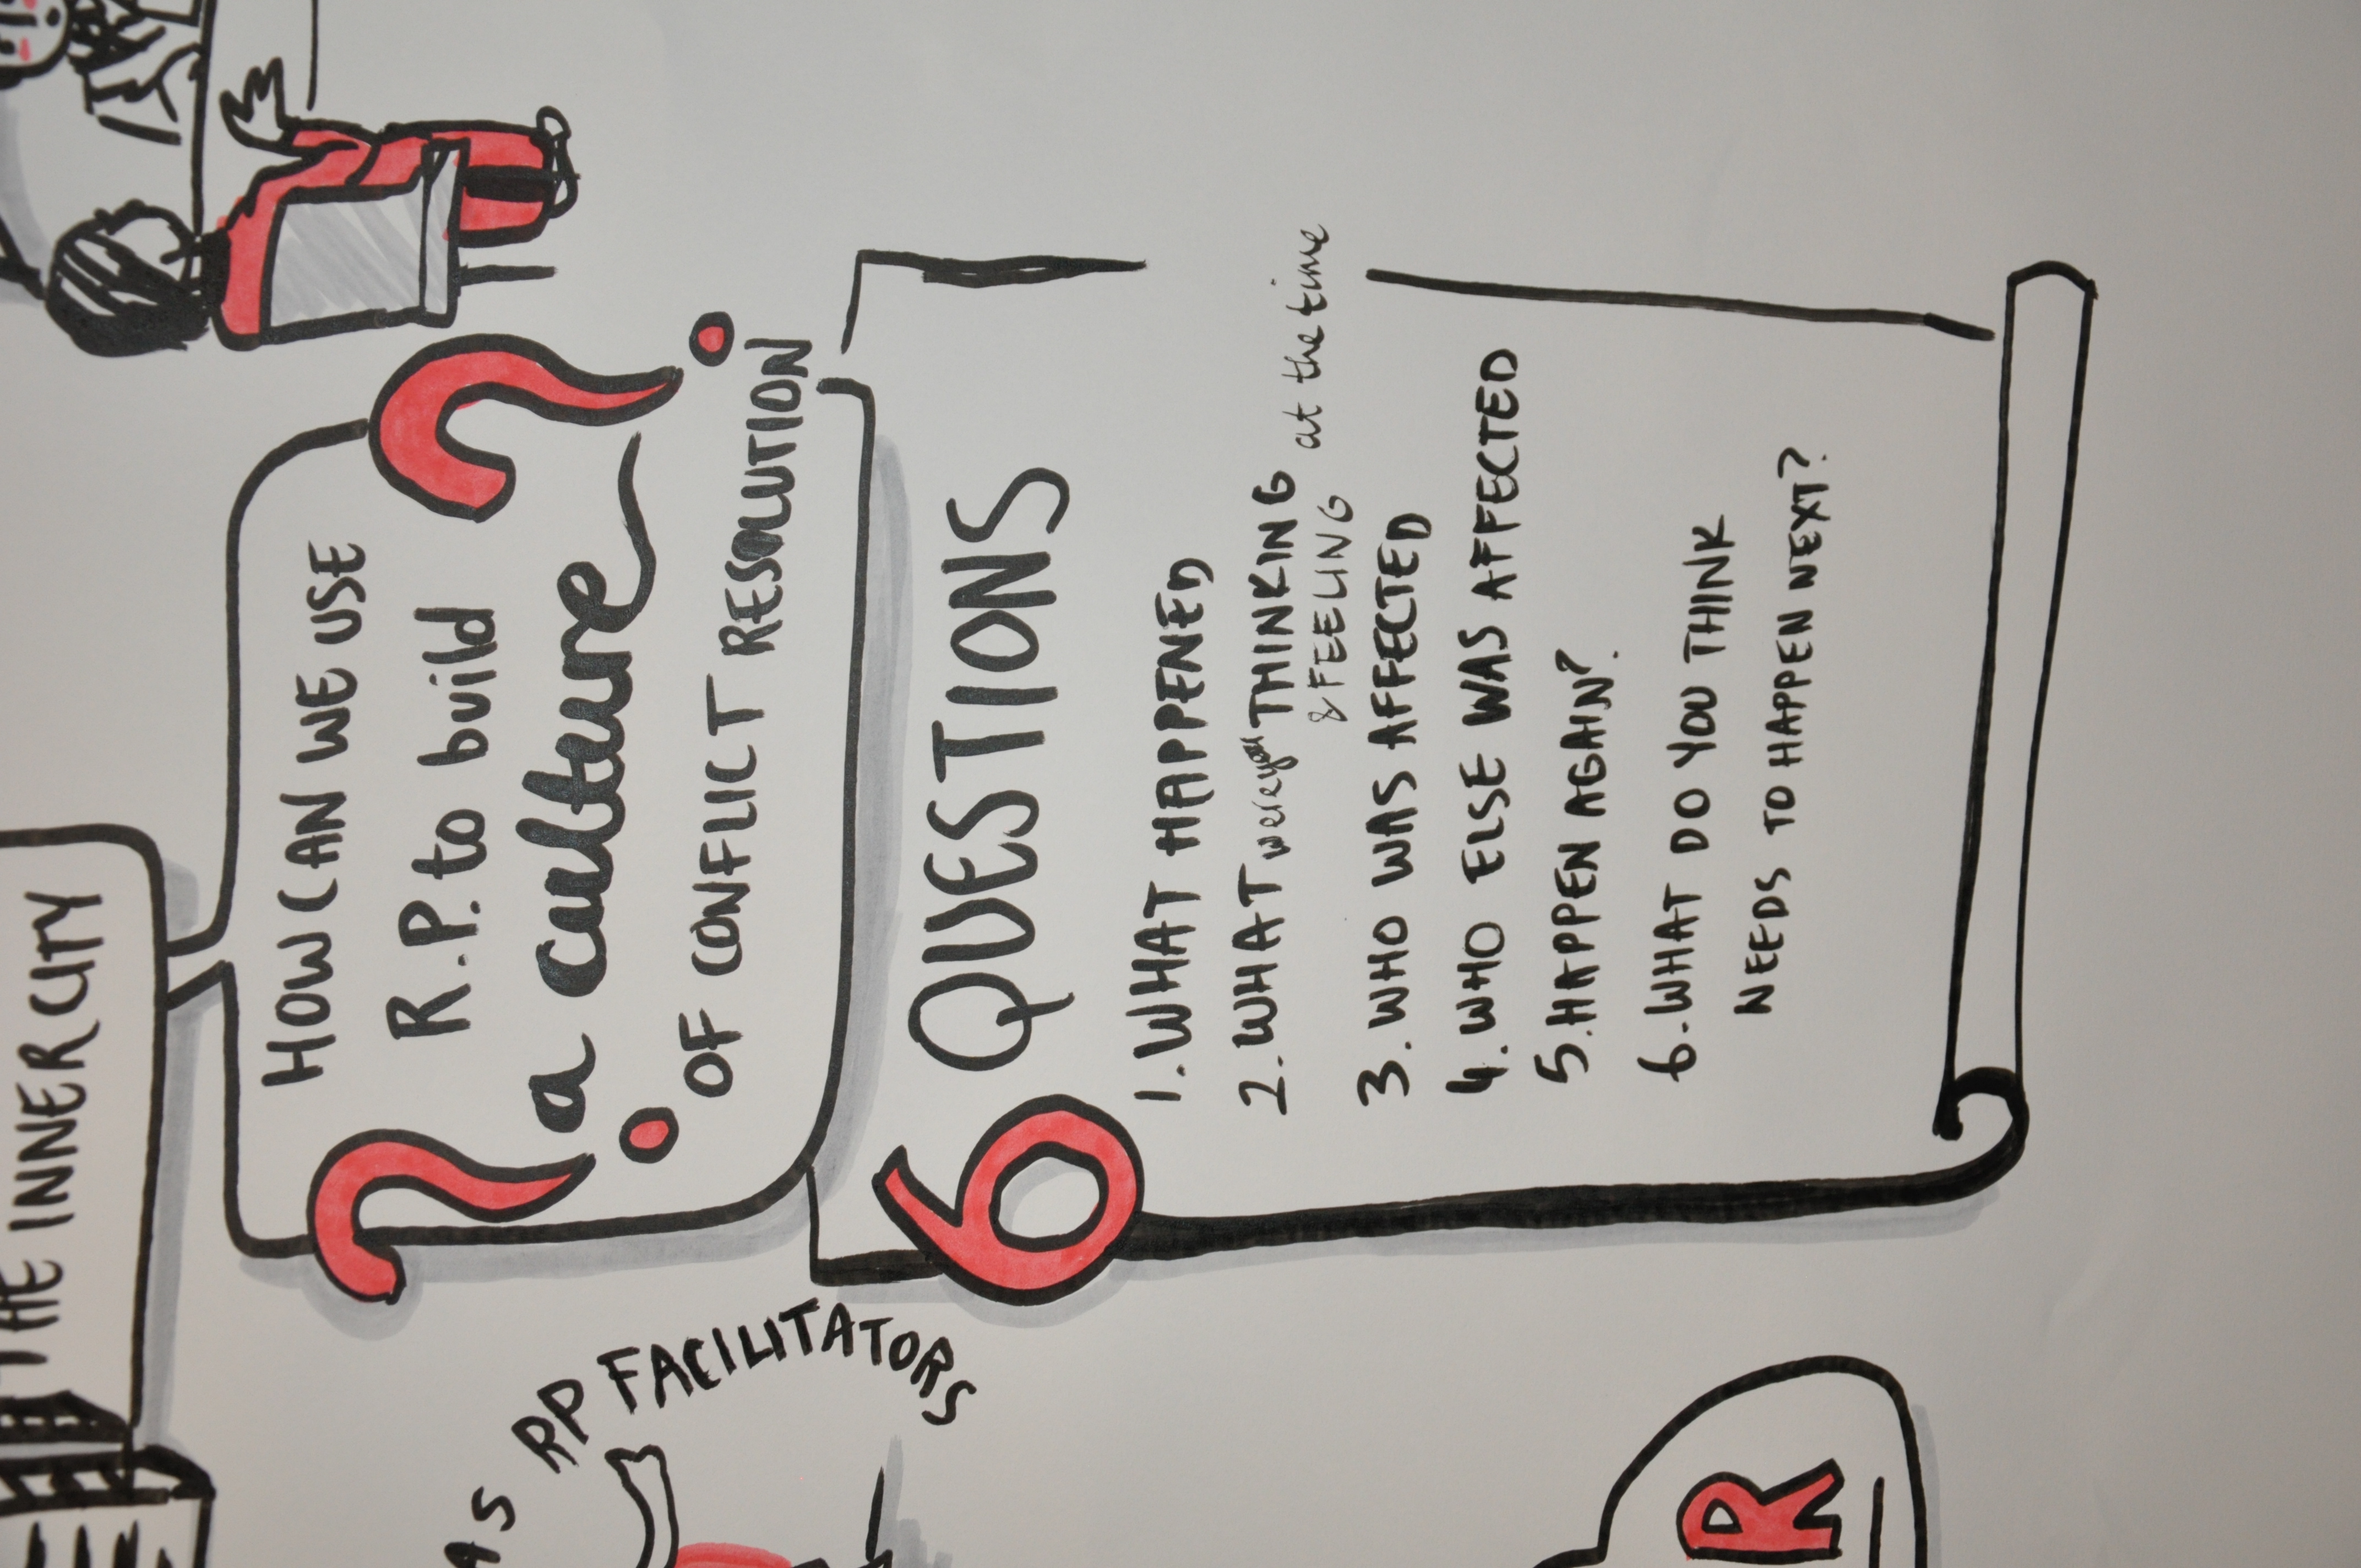 THE INNERCITY
HOW CAN WE USE
R.P. to build
a culture
OF CONFLICT RESOLUTION
? ?
6 QUESTIONS
1. WHAT HAPPENED
2. WHAT were you THINKING at the time
& FEELING
3. WHO WAS AFFECTED
4. WHO ELSE WAS AFFECTED
5. HAPPEN AGAIN?
6. WHAT DO YOU THINK
NEEDS TO HAPPEN NEXT?
AS RP FACILITATORS
R